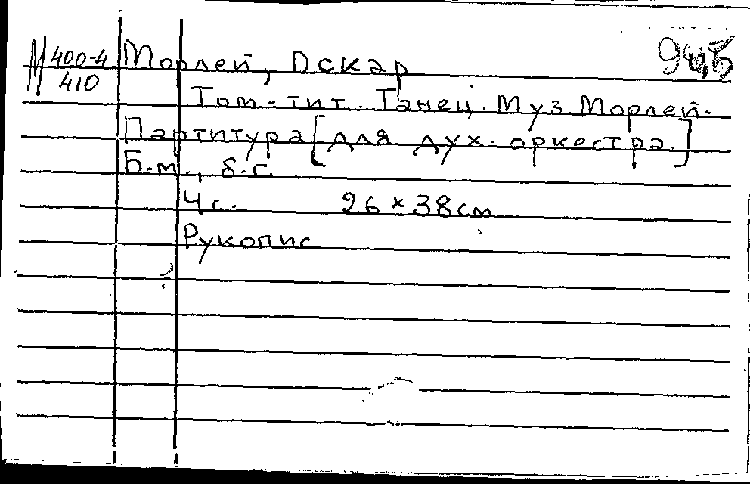 М 400-4 Морлей, Оскар
410
Том-тит. Танец. Муз Морлей.
Партитура [для дух. оркестра.]
Б.м., б.г.
4 с. 26 × 38 см
Рукопис